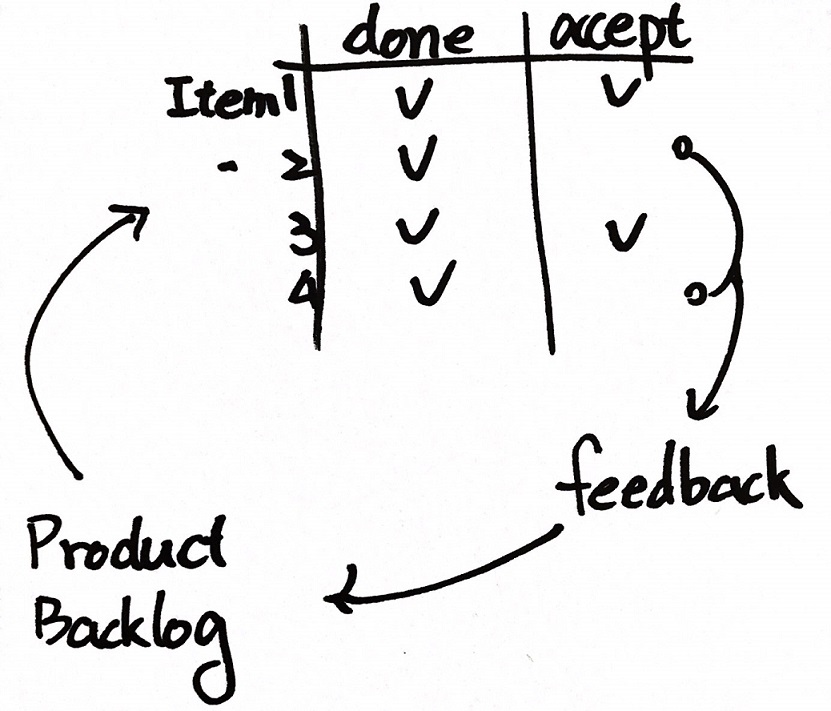 done accept
Item1 V V
- 2 V
3 V V
4 V
feedback
Product
Backlog